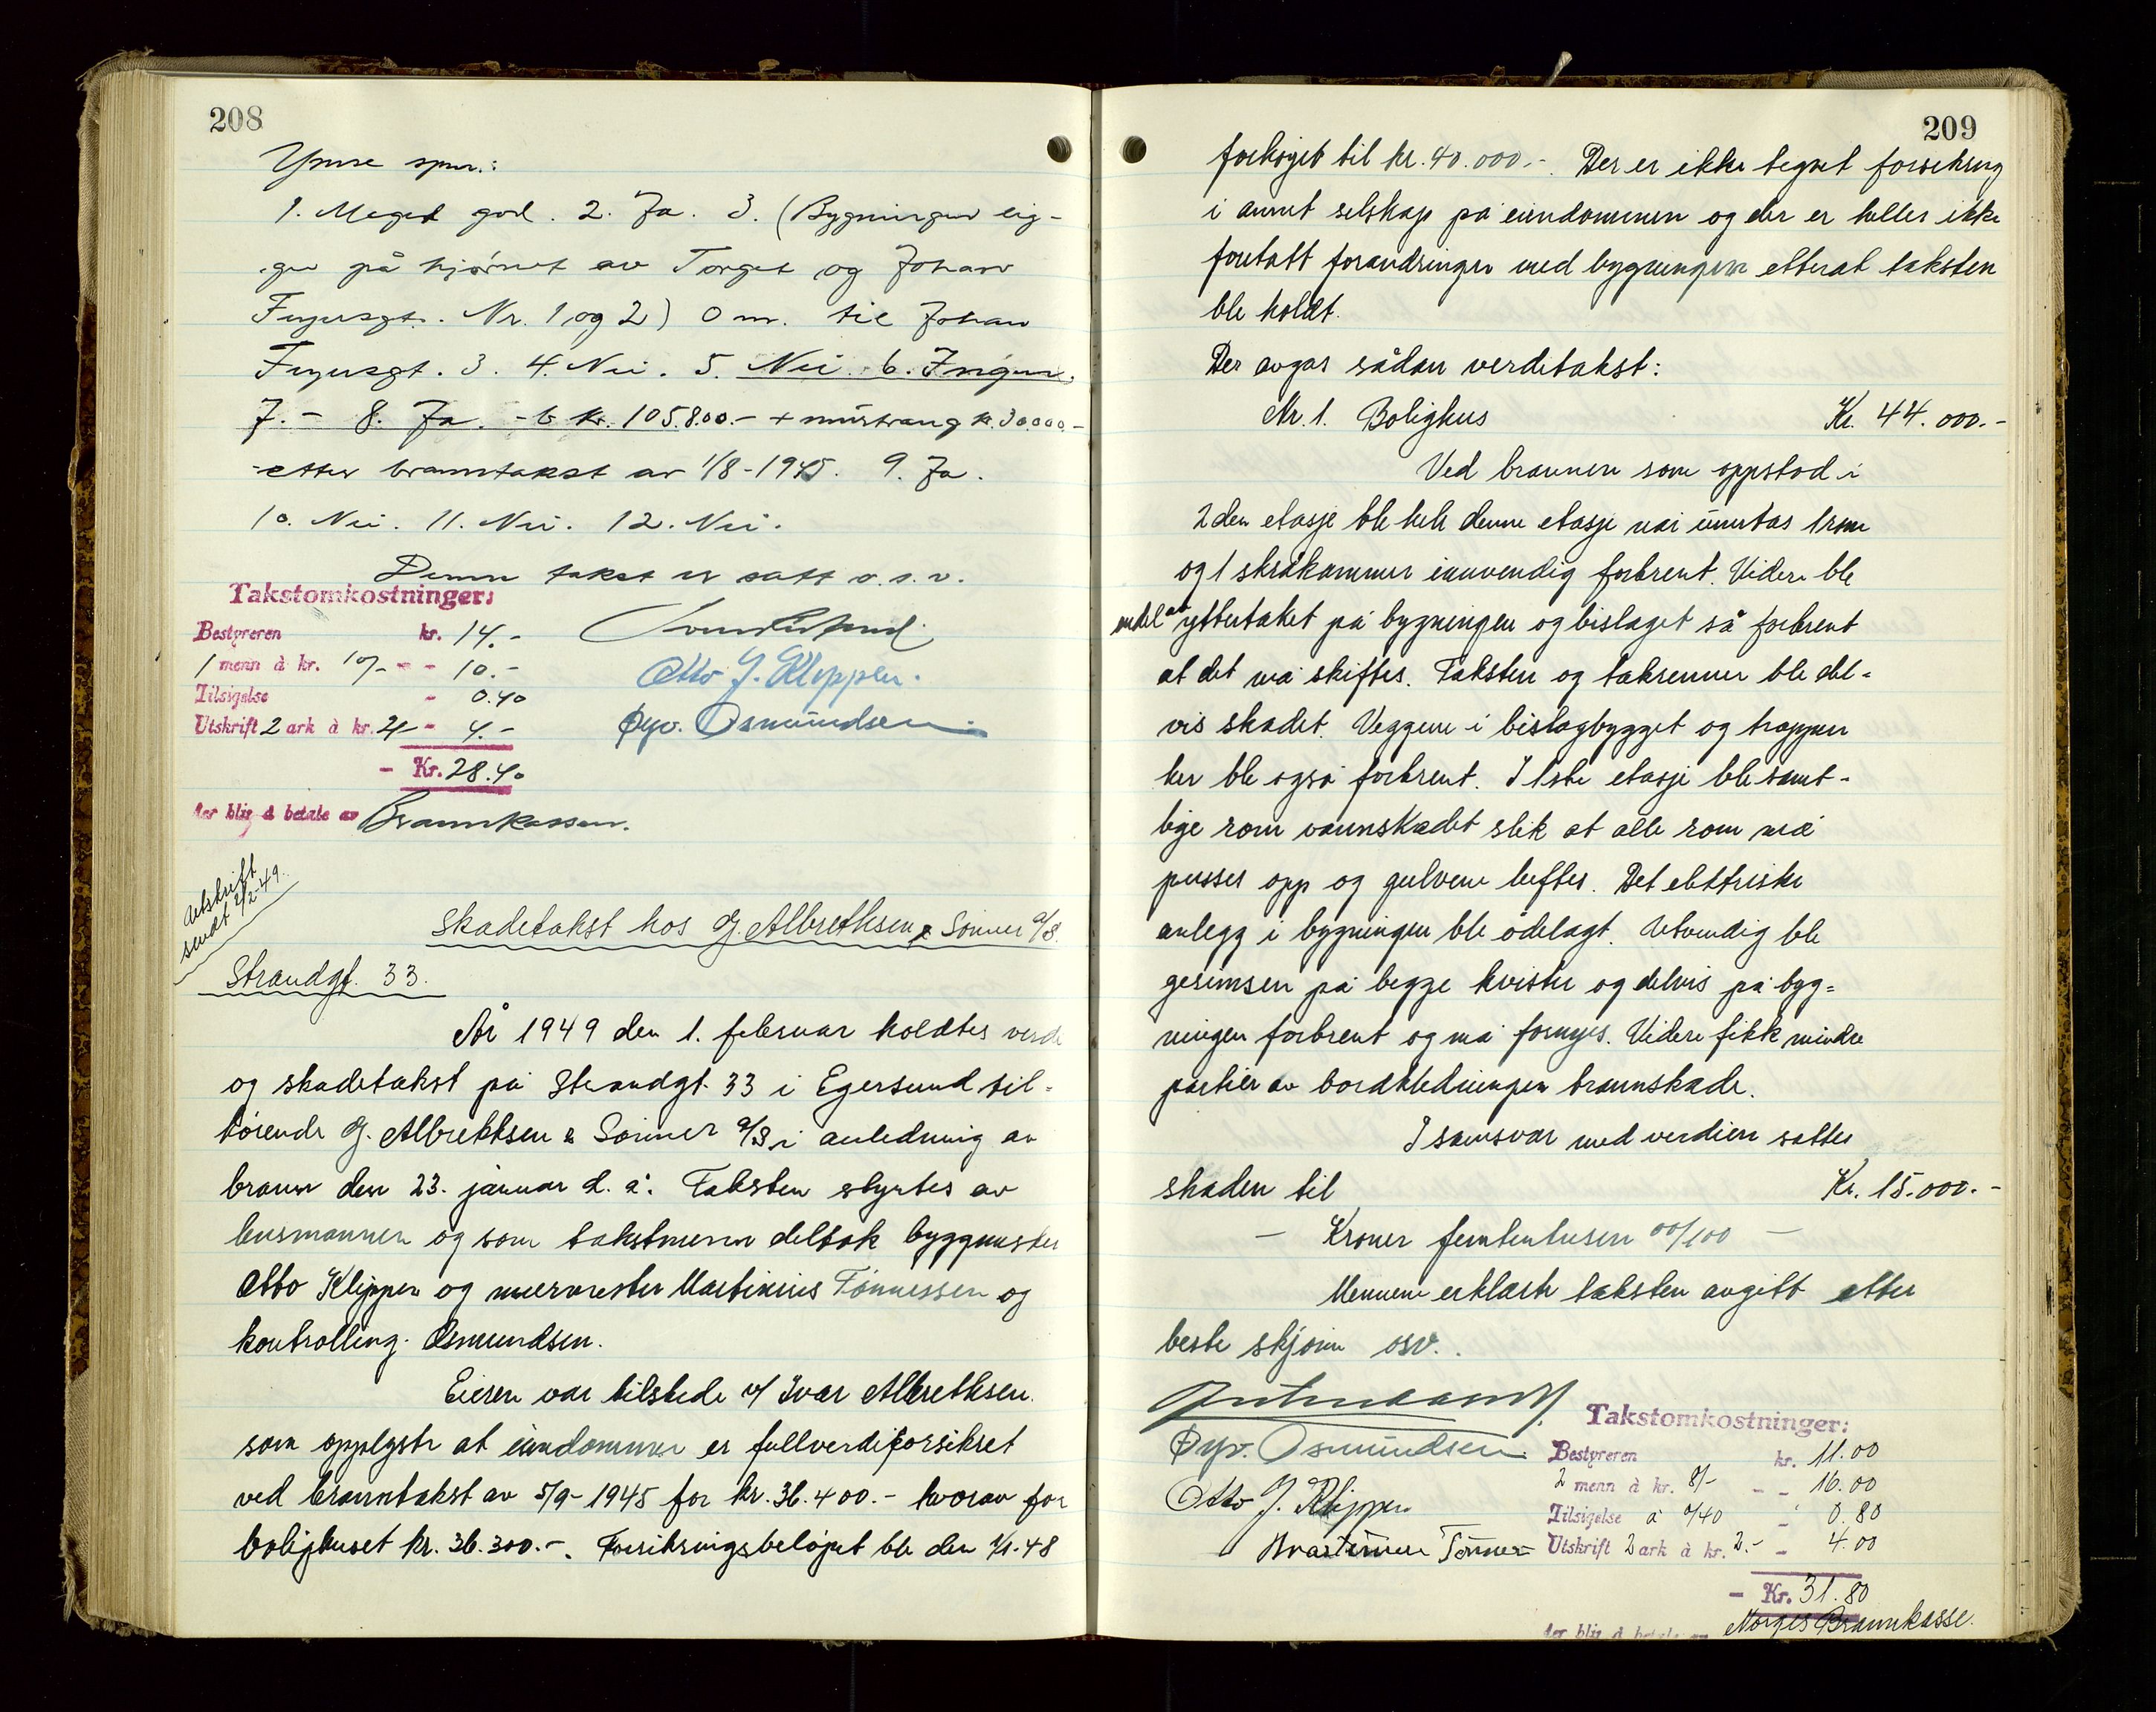 208
Ymse spm.:
1. Meget god. 2. Ja. 3. (Bygningen lig-
ger på hjørnet av Torget og Johan
Feyersgt. Nr. 1 og 2) 0 m. til Johan
Feyersgt. 3. 4. Nei. 5. Nei. 6. Ingen.
7. - 8. Ja. - kr. 105.800.- + kr. 30.000.-
etter branntakst av 1/8-1945. 9. Ja.
10. Nei. 11. Nei. 12. Nei.
Denne takst er satt o.s.v.
Takstomkostninger:
Bestyreren kr. 14.-
1 menn à kr. 10/- - - 10.-
Tilsigelse - 0.40
Utskrift 2 ark à kr. 2/- - 4.-
- Kr. 28.40
der blir å betale av Brannkassen.
Otto J. Kleppen.
Øyv. Osmundsen.
Utskrift
sendt 2/2-49.
Skadetakst hos J. Albrethsen & Sønner A/S.
Strandgt. 33.
År 1949 den 1. februar holdtes verdi
og skadetakst på Strandgt. 33 i Egersund til-
hørende J. Albrektsen & Sønner A/S i anledning av
brann den 23. januar d. å. Taksten styrtes av
lensmannen og som takstmenn deltok byggmester
Otto Kleppen og murmester Martinius Tønnessen og
kontrolling. Osmundsen.
Eieren var tilstede v/ Ivar Albrethsen.
som opplyste at eiendommen er fullverdiforsikret
ved branntakst av 5/9-1945 for kr. 36.400.- hvorav for
bolighuset kr. 36.300.-. Forsikringsbeløpet ble den 1/1-48
209
forhøyet til kr. 40.000.-. Der er ikke tegnet forsikring
i annet selskap på eiendommen og der er heller ikke
foretatt forandringer med bygningen etterat taksten
ble holdt.
Der avgas sådan verditakst:
Nr. 1. Bolighus Kr. 44.000.-
Ved brannen som oppstod i
2den etasje ble hele denne etasje når unntas 1 rom
og 1 skråkammer innvendig forbrent. Videre ble
endel av yttertaket på bygningen og bislaget så forbrent
at det må skiftes. Taksten og takrenner ble del-
vis skadet. Veggene i bislagbygget og trappen
her ble også forbrent. I 1ste etasje ble samt-
lige rom vannskadet slik at alle rom må
pusses opp og gulvene løftes. Det elektriske
anlegg i bygningen ble ødelagt. Utvendig ble
gesimsen på begge kvister og delvis på byg-
ningen forbrent og må fornyes. Videre fikk mindre
partier av bordkledningen brannskade.
I samsvar med verdien sattes
skaden til Kr. 15.000.-
- Kroner femtentusen 00/100 -
Mennene erklærte taksten avgitt etter
beste skjønn osv..
Øyv. Osmundsen.
Otto J. Kleppen
Martinius Tønnes-
Takstomkostninger:
Bestyreren kr. 11.00
2 menn à kr. 8/- - - 16.00
Tilsigelse à 0/40 - 0.80
Utskrift 2 ark à kr. 2.- - 4.00
- Kr. 31.80
der blir å betale av Norges Brannkasse.